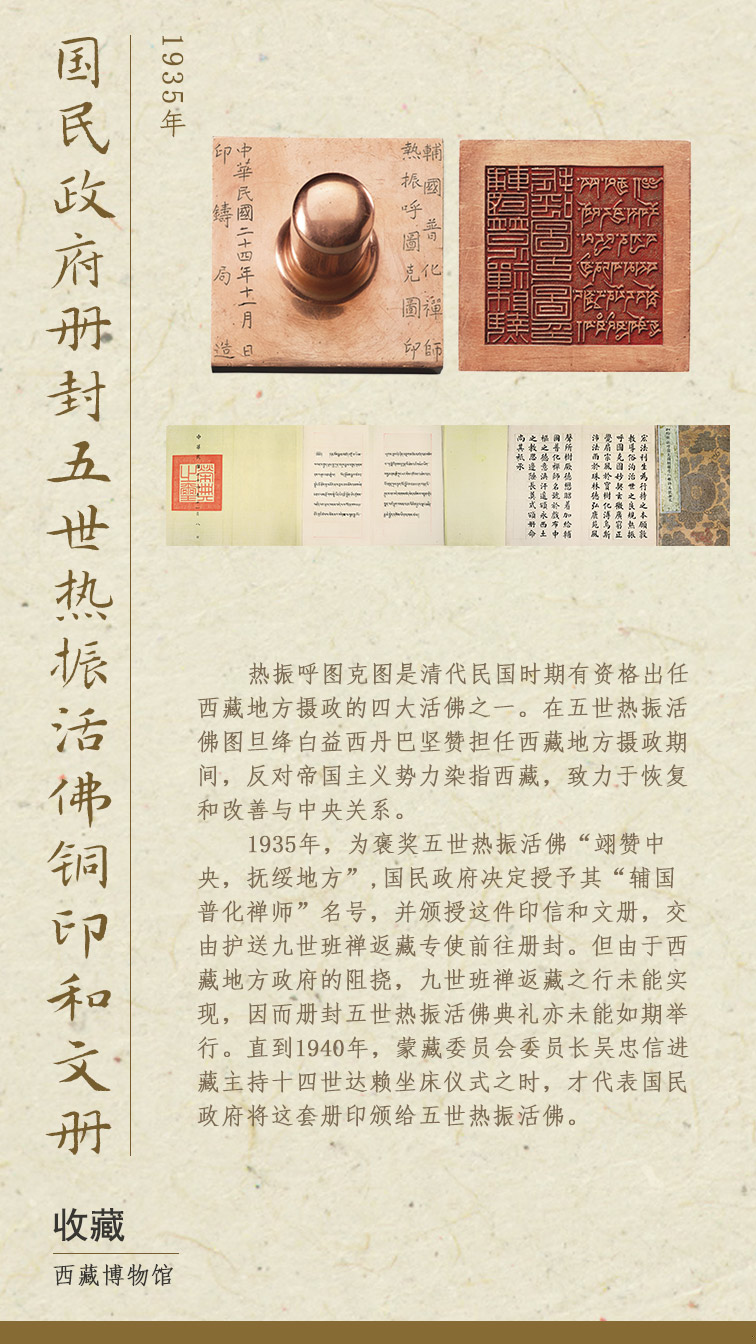 国民政府册封五世热振活佛铜印和文册
1935年
輔國普化禪師
熱振呼圖克圖印
中華民國二十四年十一月 日
印鑄局造
热振呼图克图是清代民国时期有资格出任
西藏地方摄政的四大活佛之一。在五世热振活
佛图旦绛白益西丹巴坚赞担任西藏地方摄政期
间，反对帝国主义势力染指西藏，致力于恢复
和改善与中央关系。
1935年，为褒奖五世热振活佛“翊赞中
央，抚绥地方”,国民政府决定授予其“辅国
普化禅师”名号，并颁授这件印信和文册，交
由护送九世班禅返藏专使前往册封。但由于西
藏地方政府的阻挠，九世班禅返藏之行未能实
现，因而册封五世热振活佛典礼亦未能如期举
行。直到1940年，蒙藏委员会委员长吴忠信进
藏主持十四世达赖坐床仪式之时，才代表国民
政府将这套册印颁给五世热振活佛。
收藏
西藏博物馆